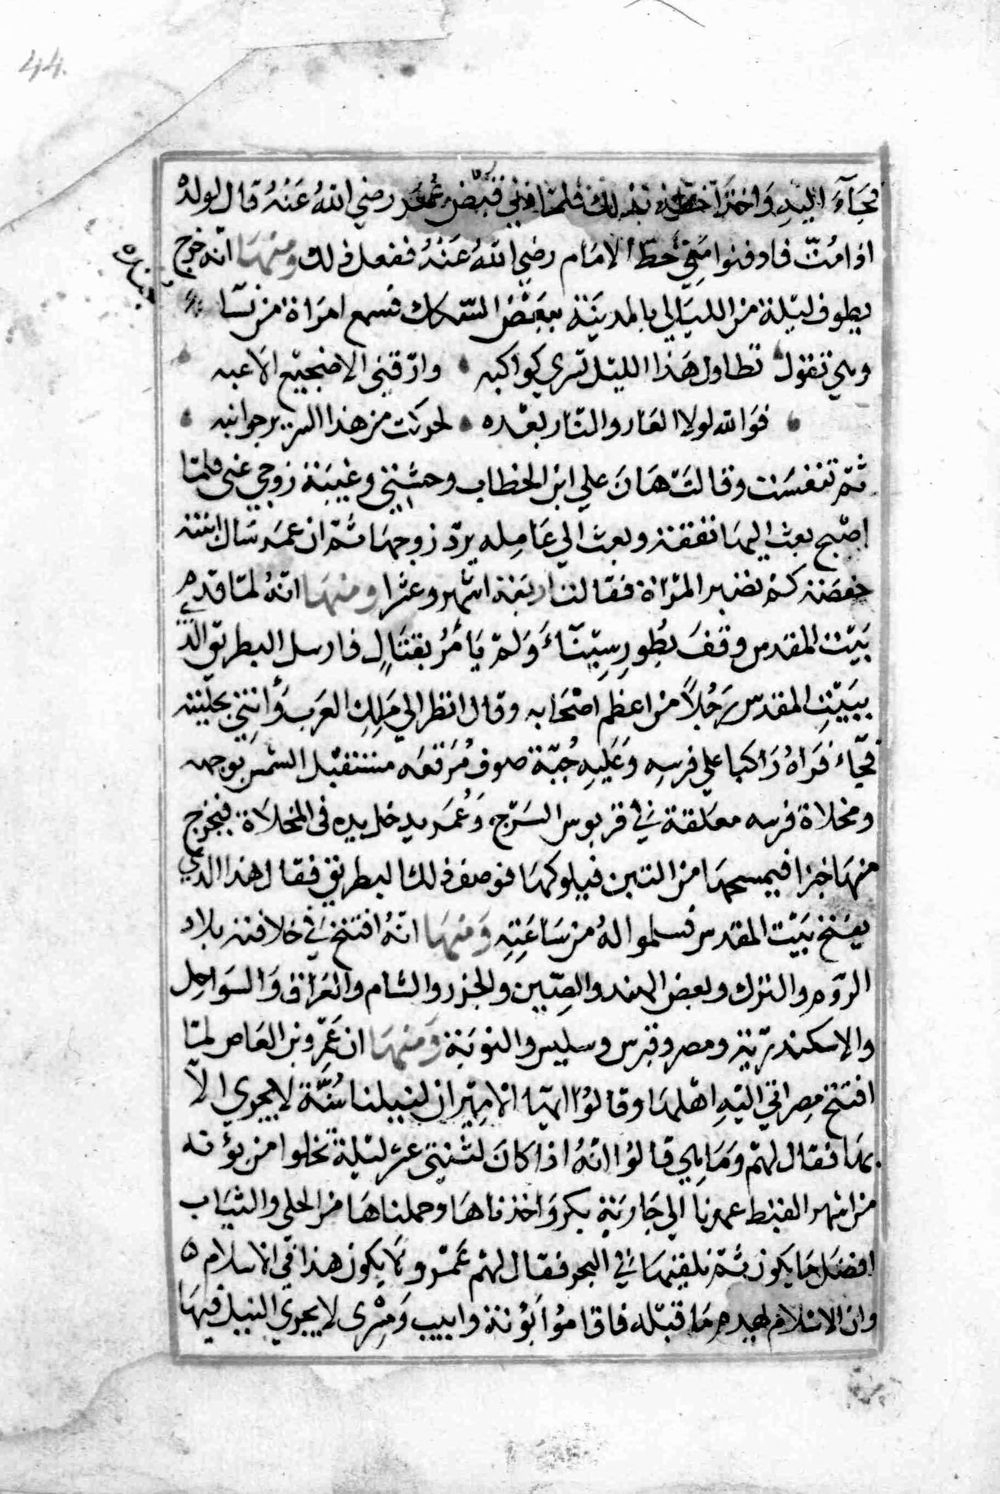 44.
فجآء اليه واخذ خطه بذلك فلما قبض عمر رضي الله عنه قال لولده
اذا مت فادفنوا معي خط الامام رضي الله عنه ففعل ذلك ومنها انه خرج
يطوف ليلة من الليالي بالمدينة ببعض السكك فسمع امراة من نسا
وهي تقول تطاول هذا الليل تسري كواكبه وارقني الا ضجيع الاعبه
فوالله لولا العار والنار بعده لحركت من هذا السرير جوانبه
ثم تنفست وقالت هان علي ابن الخطاب وحشتي وغيبة زوجي عني فلما
اصبح بعث اليها نفقة وبعث الي عامله يرد زوجها ثم ان عمر سال ابنته
حفصة كم تصبر المراة فقالت اربعة اشهر وعشرا ومنها انه لما قدم
بيت المقدس وقف بطور سيناء ولم يأمر بقتال فارسل البطريق الذي
ببيت المقدس رجلا من اعظم اصحابه وقال انظر الي ملك العرب وأتني بحليته
فجاء فراه راكبا علي فرسه وعليه جبة صوف مرقعه مستقبل الشمس بوجهه
ومخلاة فرسه معلقة في قربوس السرج وعمر يدخل يده في المخلاة فيخرج
منها خبزا فيمسحها من التبن فيلوكها فوصف ذلك لبطريق فقال هذا الذي
يفتح بيت المقدس فسلموا له من ساعته ومنها انه افتتح في خلافته بلاد
الروم والترك وبعض الهند والصين والجزر والشام والعراق والسواحل
والاسكندرية ومصر وقبرس وسليس والنوبة ومنها ان عمرو بن العاص لما
افتتح مصر اتي اليه اهلها وقالوا ايها الامير ان لنيلنا سنة لا يجري الا
بها فقال لهم وما هي قالوا انه اذا كان لثنتي عشر ليلة تخلوا من بؤنه
من اشهر القبط عمدنا الي جارية بكر واخذناها وحملناها من الحلي والثياب
افضل ما يكون ثم نلقيها في البحر فقال لهم عمرو لا يكون هذا في الاسلام
وان الاسلام يهدم ما قبله فاقاموا بؤنة وابيب ومسرى لا يجري النيل فيها